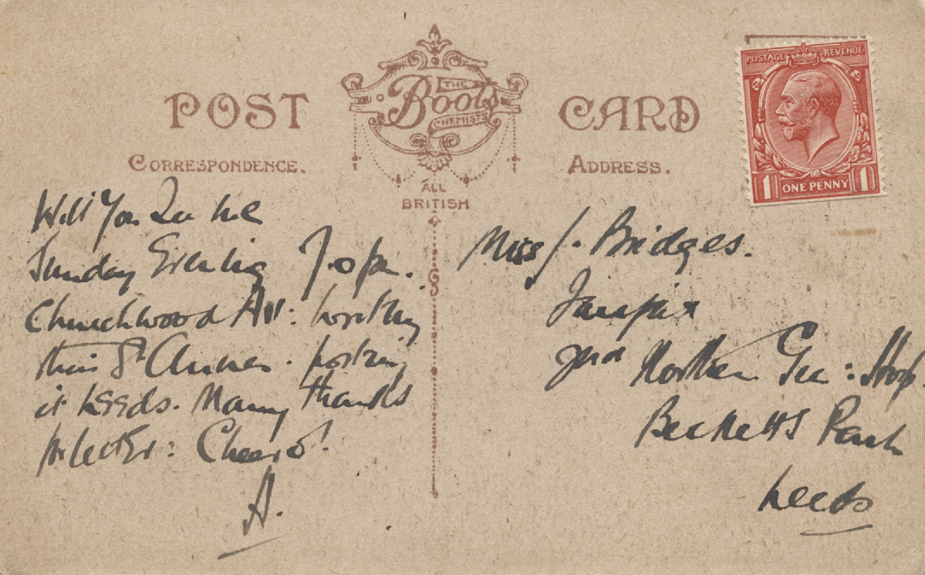 POST CARD
THE
Boots
CHEMISTS
CORRESPONDENCE.
ADDRESS.
ALL
BRITISH
POSTAGE REVENUE
1 ONE PENNY 1
Will You See me
Sunday Evening 7.0 pm.
Churchwood Av: Writing
this St Annes. posting
it Leeds. Many thanks
letter: Cheero!
A.
Miss J. Bridges.
2nd Northern Gen: Hosp.
Becketts Park
Leeds